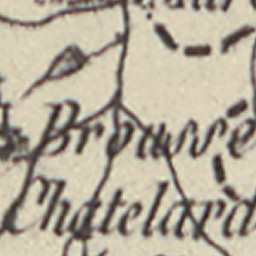 Brousse
Chatelard